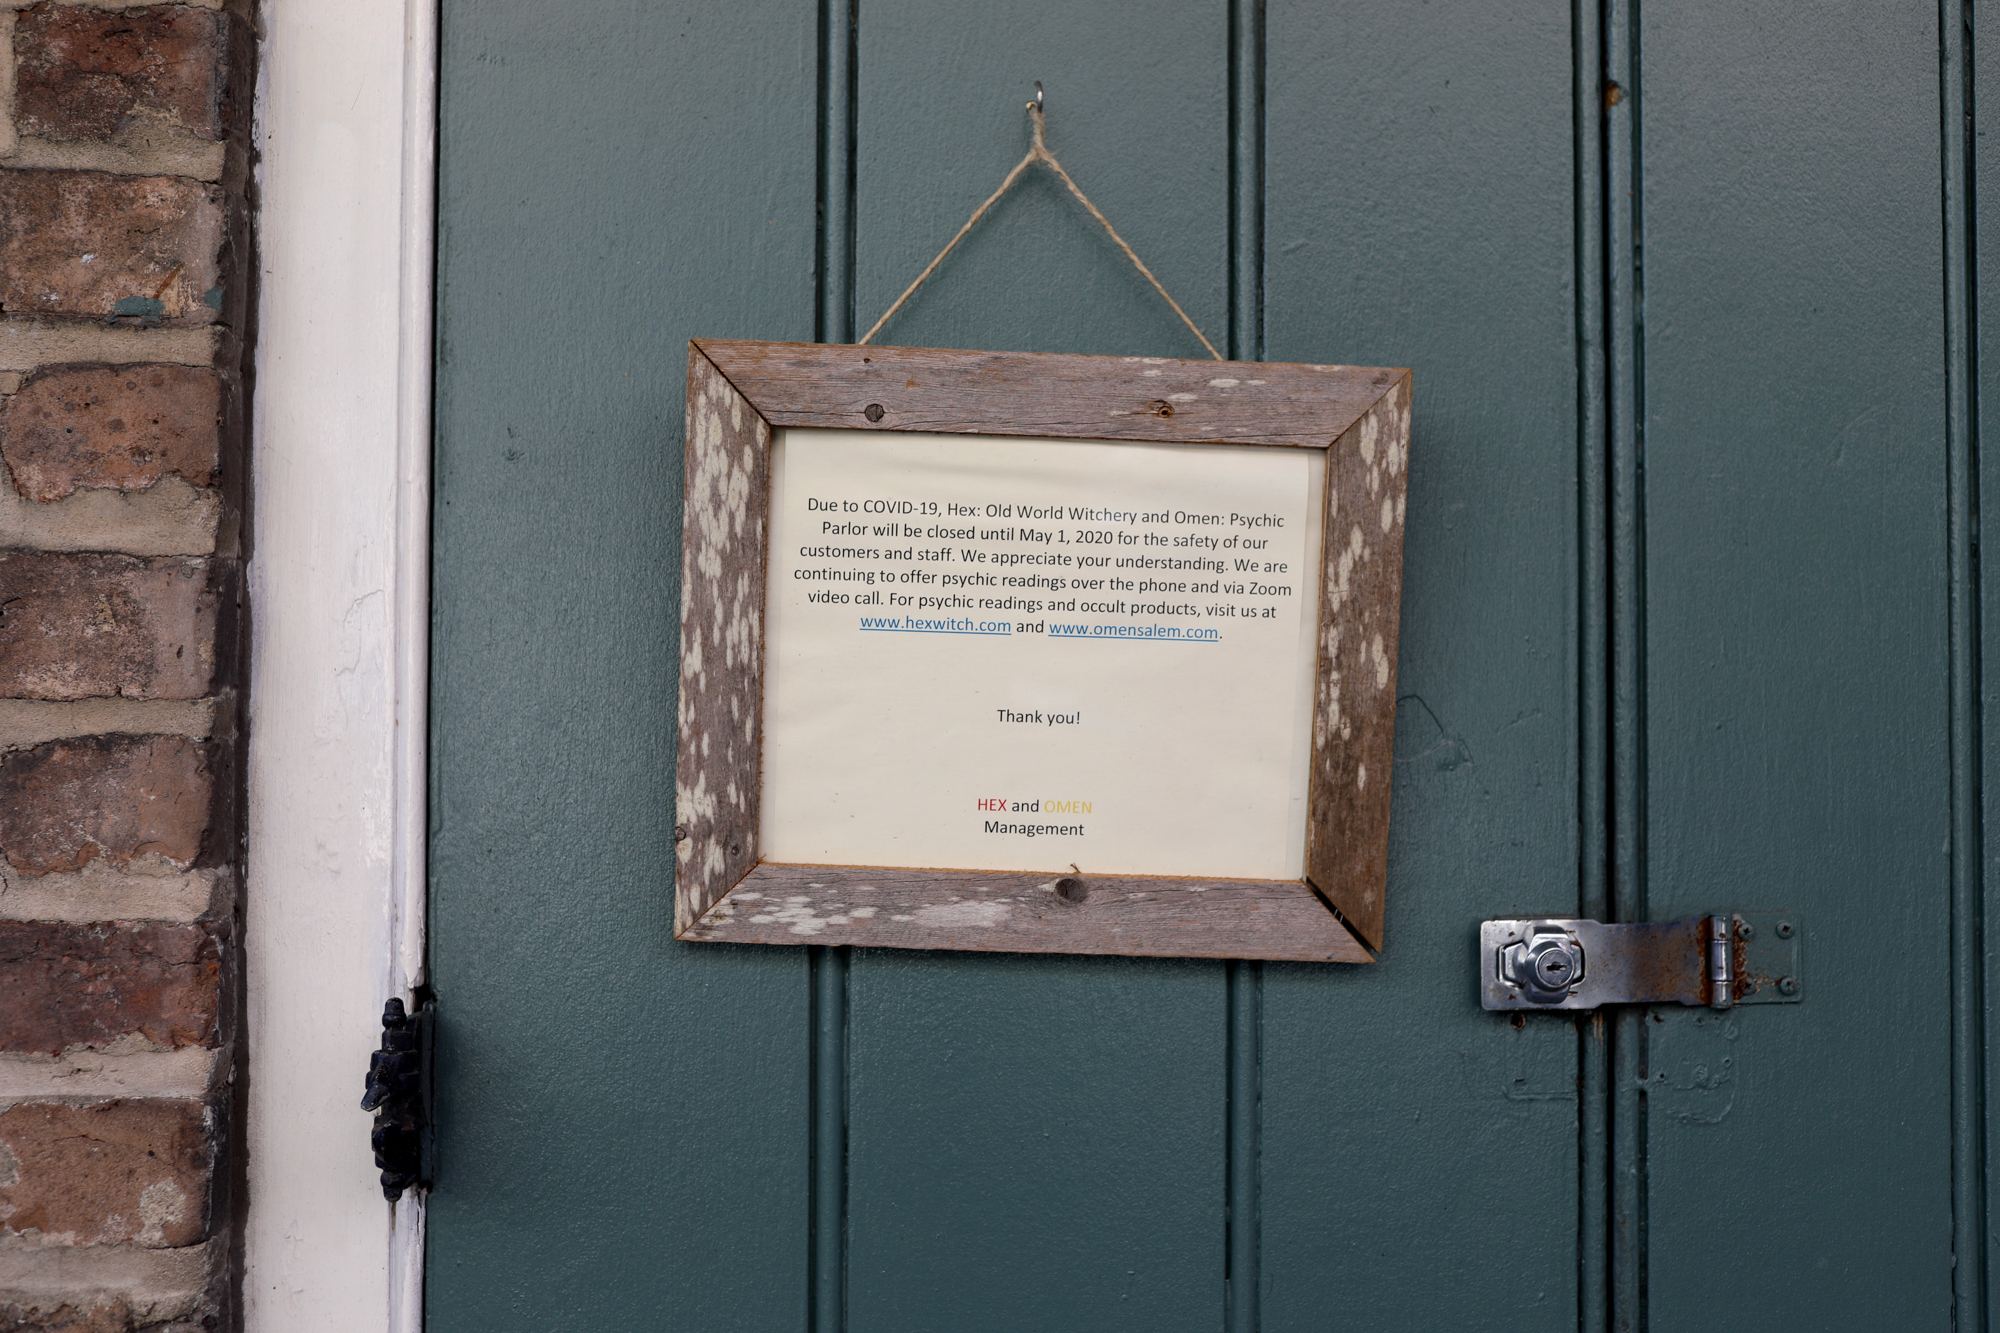 Due to COVID-19, Hex: Old World Witchery and Omen: Psychic
Parlor will be closed until May 1, 2020 for the safety of our
customers and staff. We appreciate your understanding. We are
continuing to offer psychic readings over the phone and via Zoom
video call. For psychic readings and occult products, visit us at
www.hexwitch.com and www.omensalem.com.
Thank you!
HEX and OMEN
Management